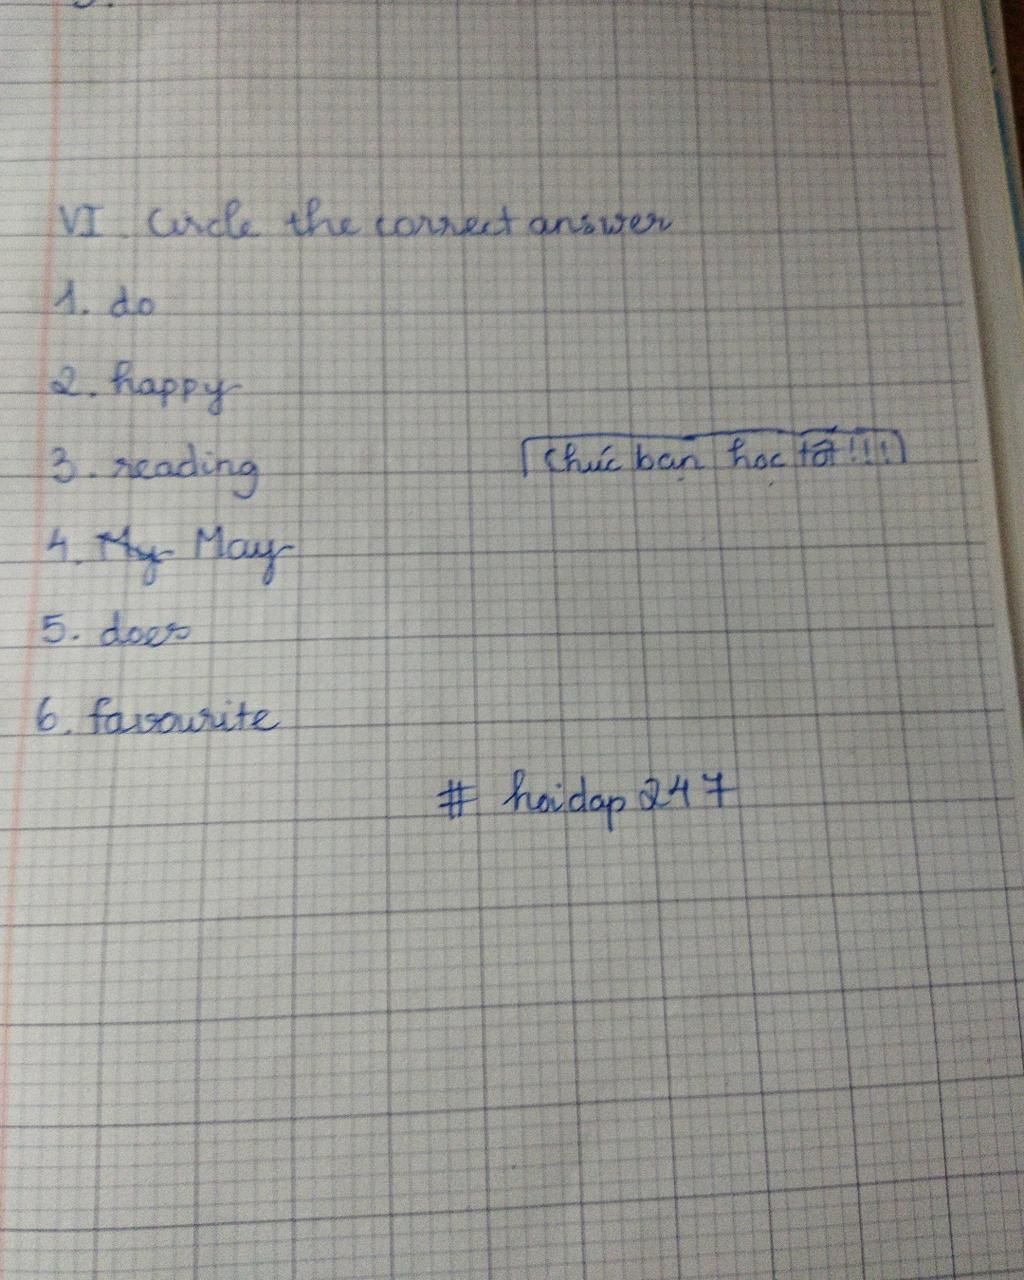 VI. Circle the correct answer
1. do
2. happy
3. reading
Chúc bạn học tốt!!!
4. My May
5. does
6. favourite
# hoidap 247